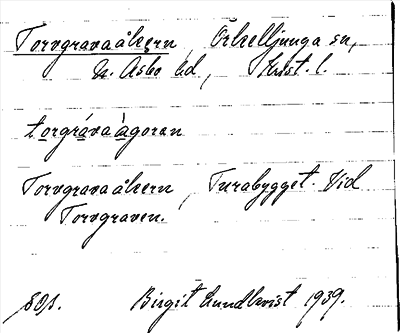 Torvgravaåkern, Örkelljunga sn,
N. Åsbo hd, Krist. l.
torgráva àgoran
Torvgravaåkern, Turabygget. Vid
Torvgraven.
Birgit Lundkvist 1939.